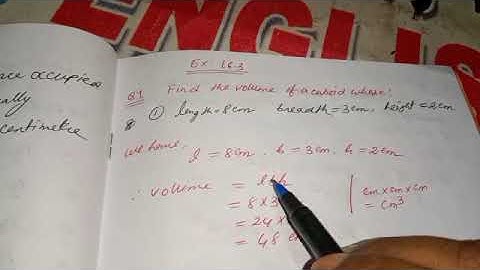 ENGLIS
Ex 16.3
nce occupies
ally
centimetre
Q1 Find the volume of a cuboid whose:
① length = 8cm breadth = 3cm, height = 2cm
We have,
l = 8cm . b = 3cm, h = 2cm
∴ volume = lbh
= 8 x 3
= 24 x
= 48 c
cm x cm x cm
= cm³